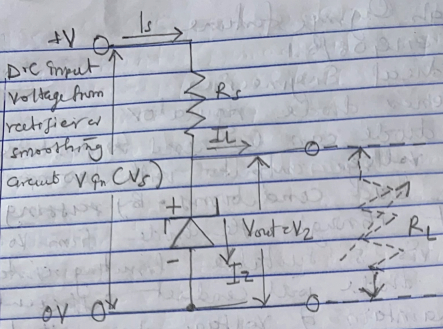 +V
Is
D.C input
Voltage from
rectifier or
smoothing
circuit Vin (Vs)
Rs
IL
+
Vout = VZ
RL
-
IZ
0V